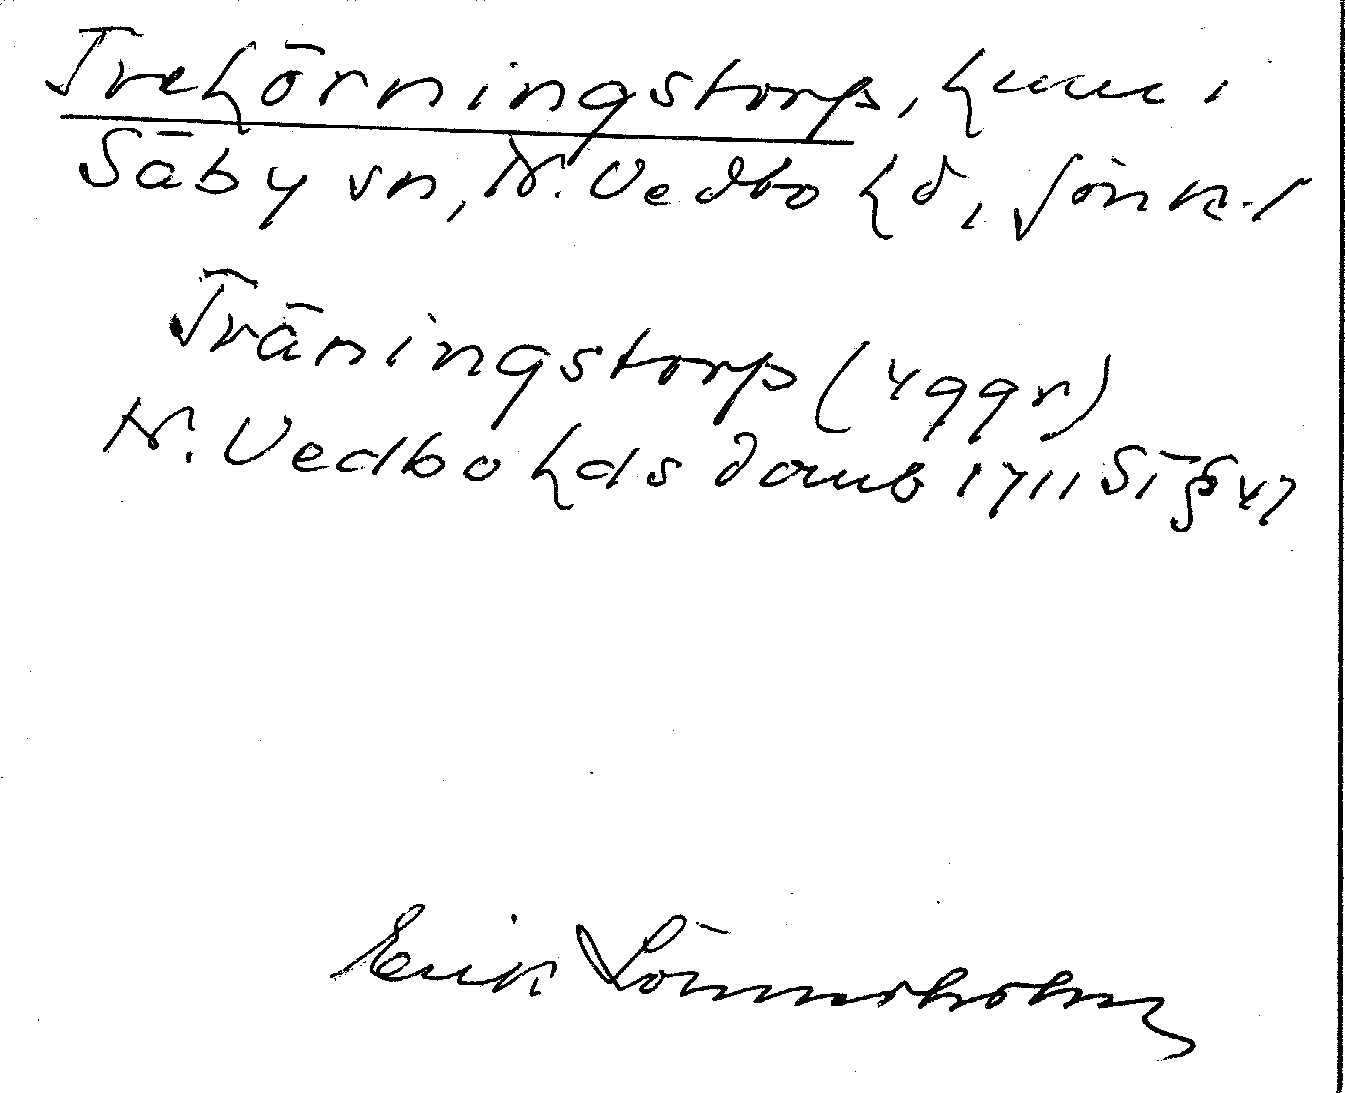 Trehörningstorp, hmn i
Säby sn, N. Vedbo hd, Jönk. l
Träningstorp (4 ggr)
N. Vedbo hds domb 1711 St § 47
Erik Lönnerholm